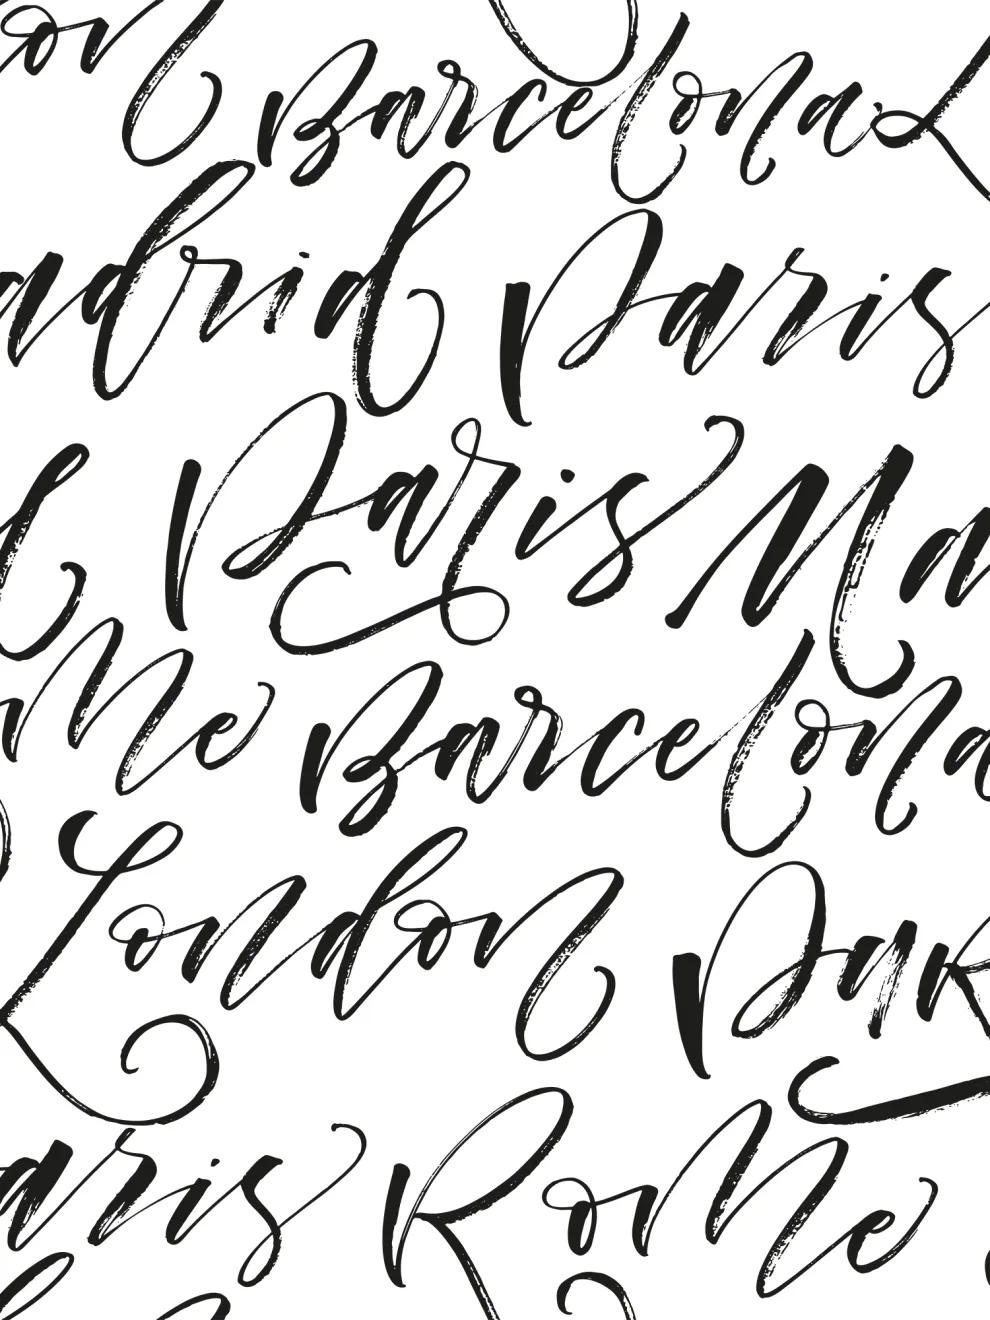 on Barcelona L
adrid Paris
d Paris Ma
oMe Barcelona
London Par
aris RoMe